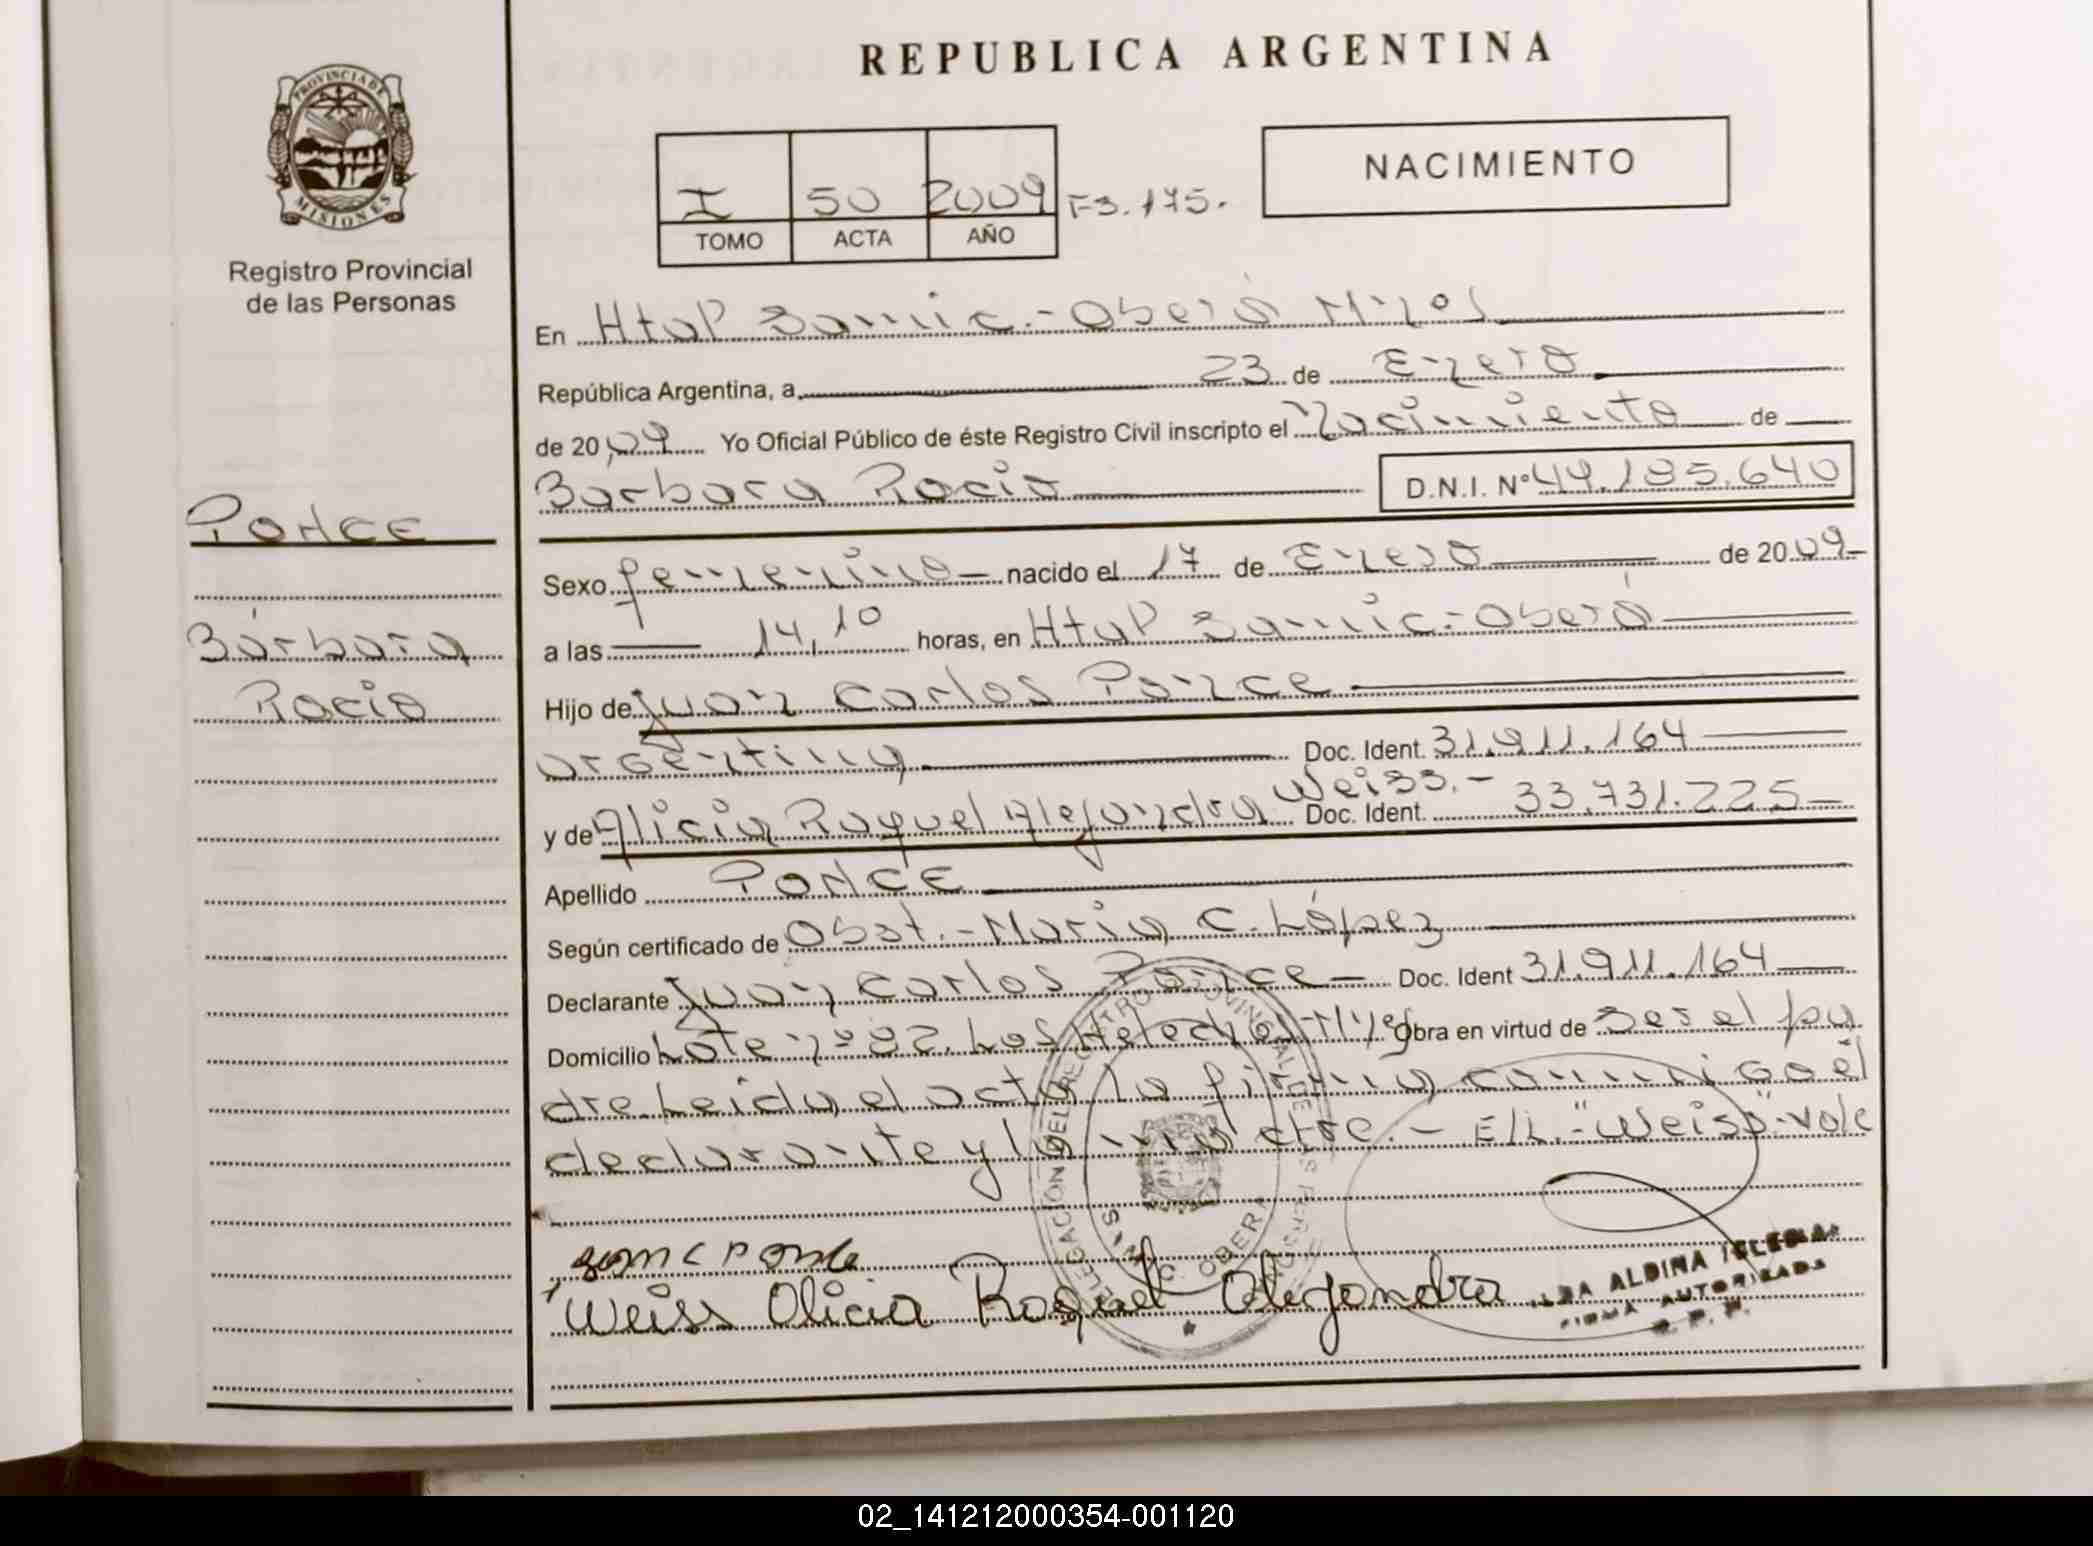 REPUBLICA ARGENTINA
PROVINCIA DE
MISIONES
Registro Provincial
de las Personas
I 50 2009 F3.175.
TOMO ACTA AÑO
NACIMIENTO
En Htal Samic.-Oberá Mnes
República Argentina, a 23 de Enero
de 2009 Yo Oficial Público de éste Registro Civil inscripto el Nacimiento de
Bárbara Rocio D.N.I. Nº 49.185.640
Ponce
Bárbara
Rocio
Sexo femenino nacido el 17 de Enero de 2009
a las 14,10 horas, en Htal Samic.-Oberá
Hijo de Juan Carlos Ponce
argentino Doc. Ident. 31.911.164
Weiss.-
y de Alicia Raquel Alejandra Doc. Ident. 33.731.225
Apellido Ponce
Según certificado de Obst.-Maria C. López
Declarante Juan Carlos Ponce Doc. Ident 31.911.164
Domicilio Lote nº 82. Los Helechos Obra en virtud de ser el pa
dre. Leida el acta la firma conmigo el
declarante y la madre.- E/L.-"Weiss"-Vale
Ponce
Weiss Alicia Raquel Alejandra
ALDINA IGLESIAS
FIRMA AUTORIZADA
R. P. P.
02_141212000354-001120